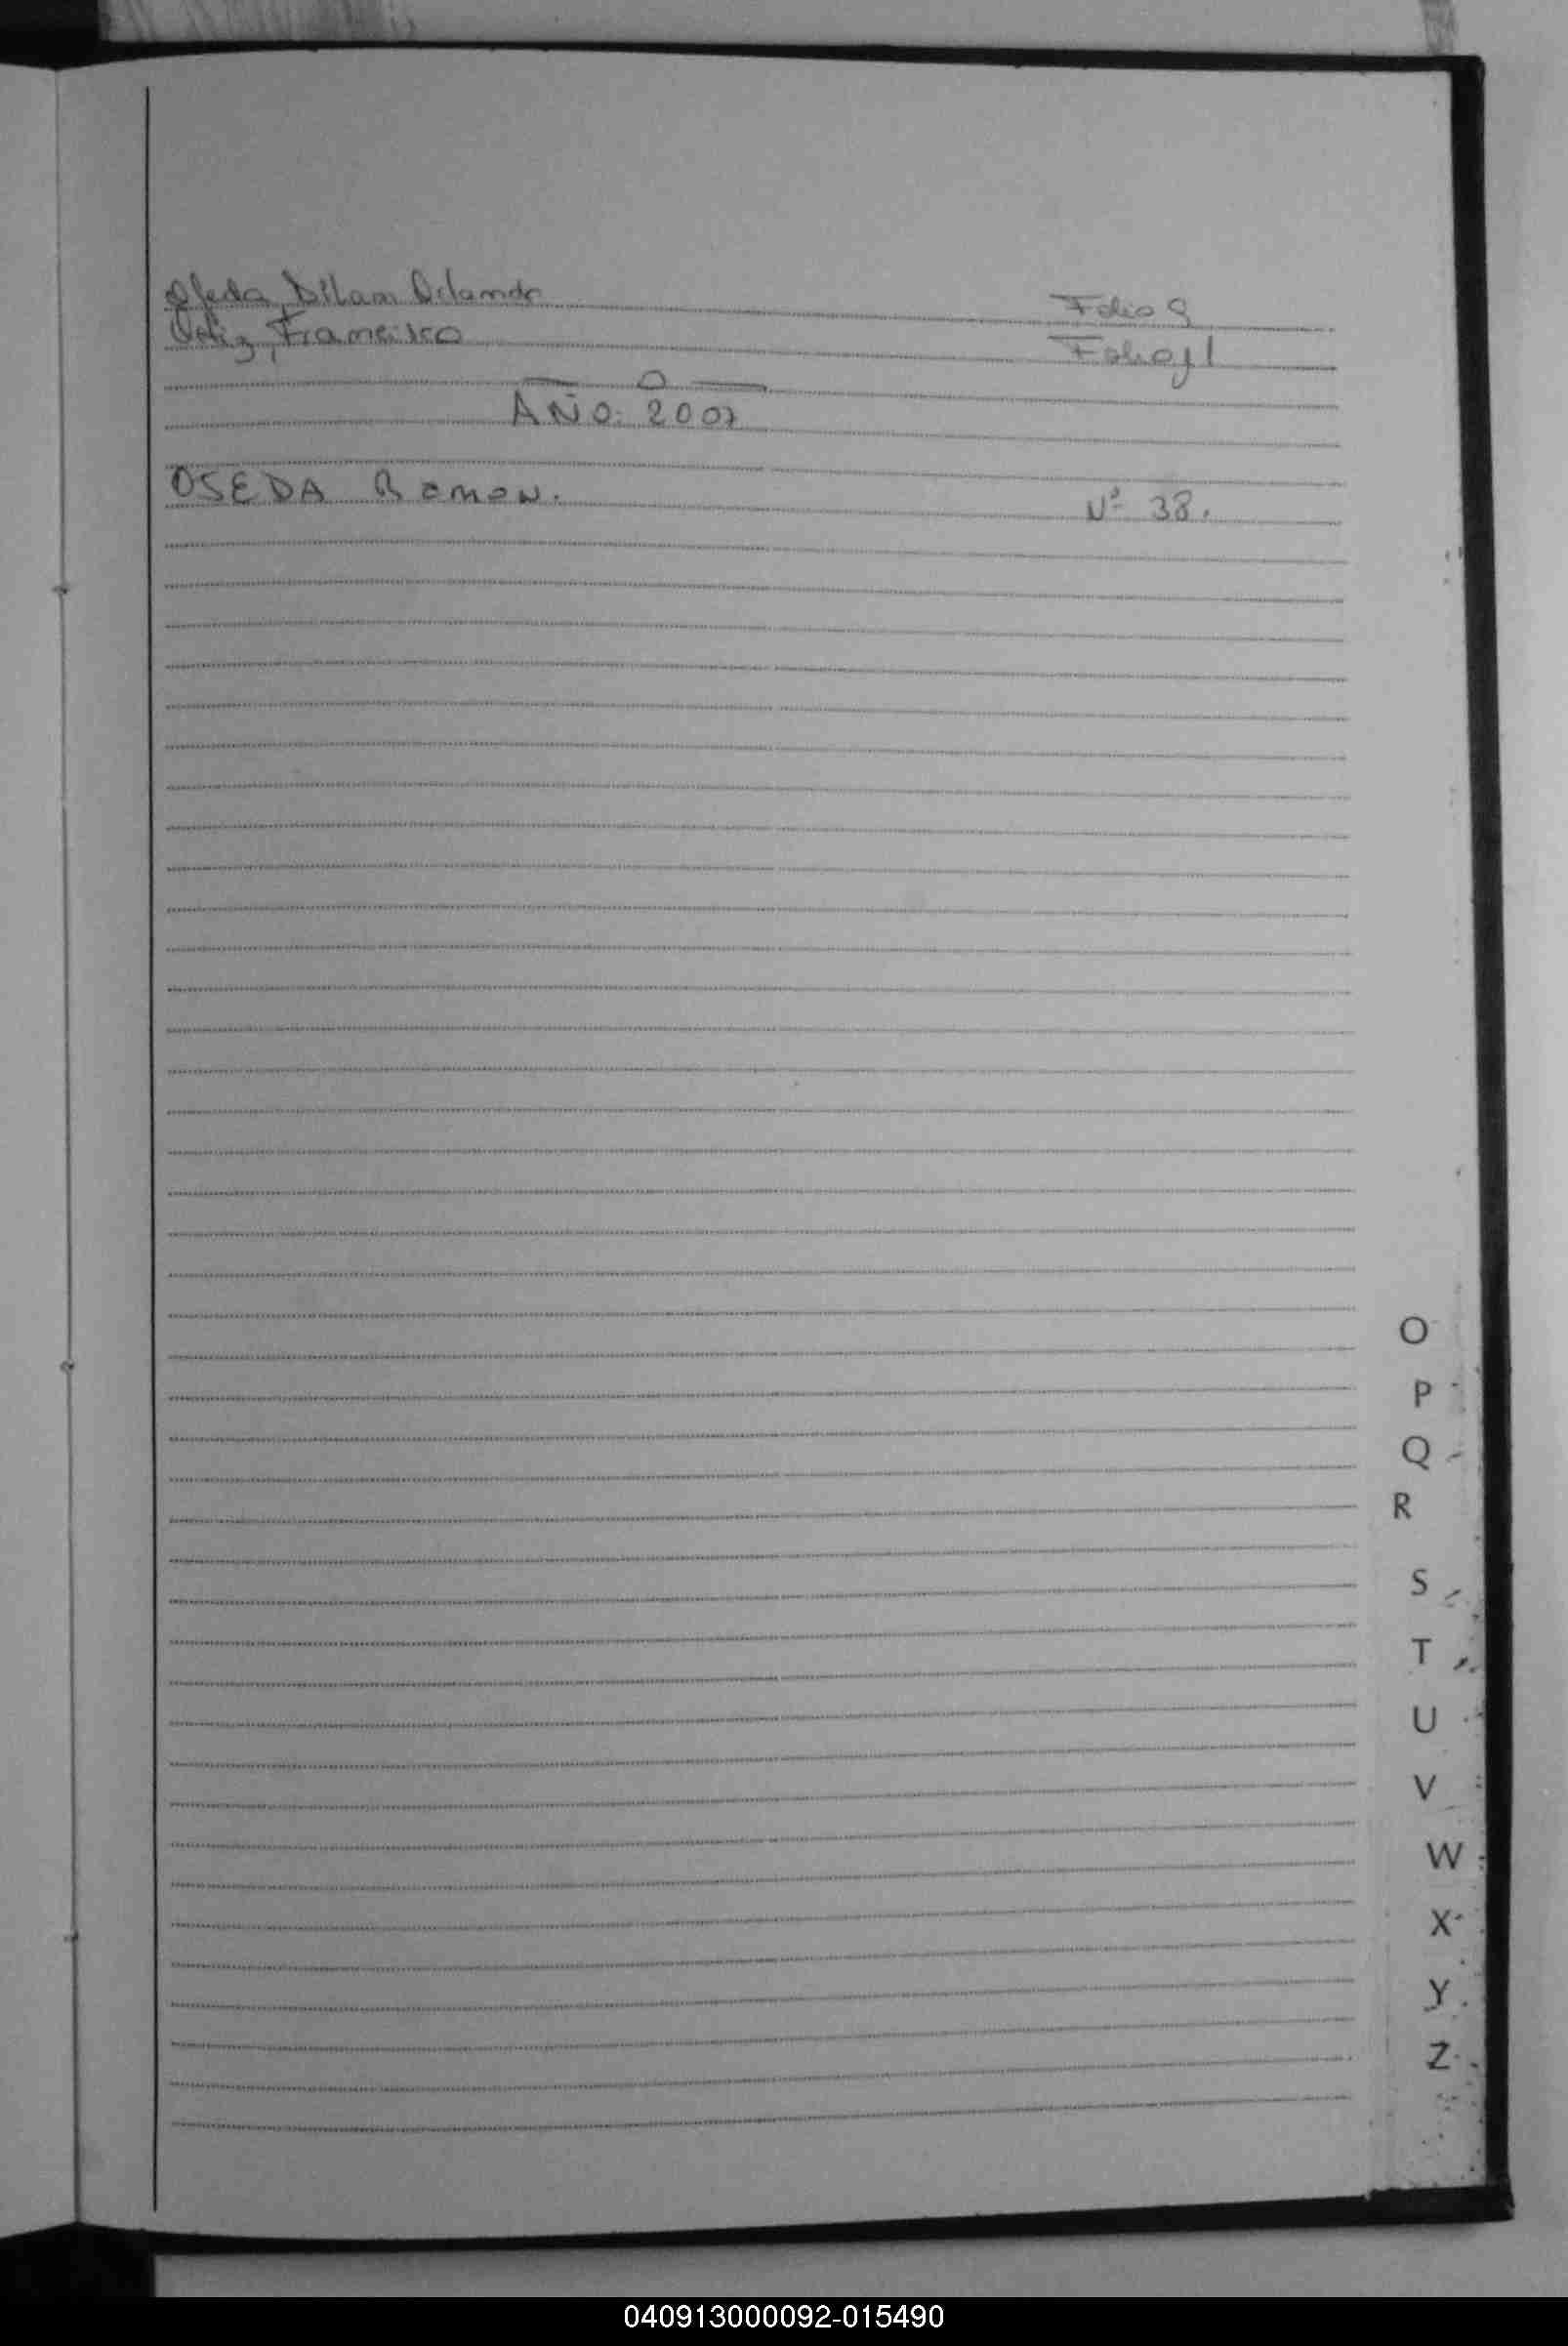 Ojeda, Dilam Orlando Folio 9
Ortiz, Francisco Folio 91
— O —
AÑO: 2007
OSEDA RAMON. Nº 38.
O
P
Q
R
S
T
U
V
W
X
Y
Z
040913000092-015490